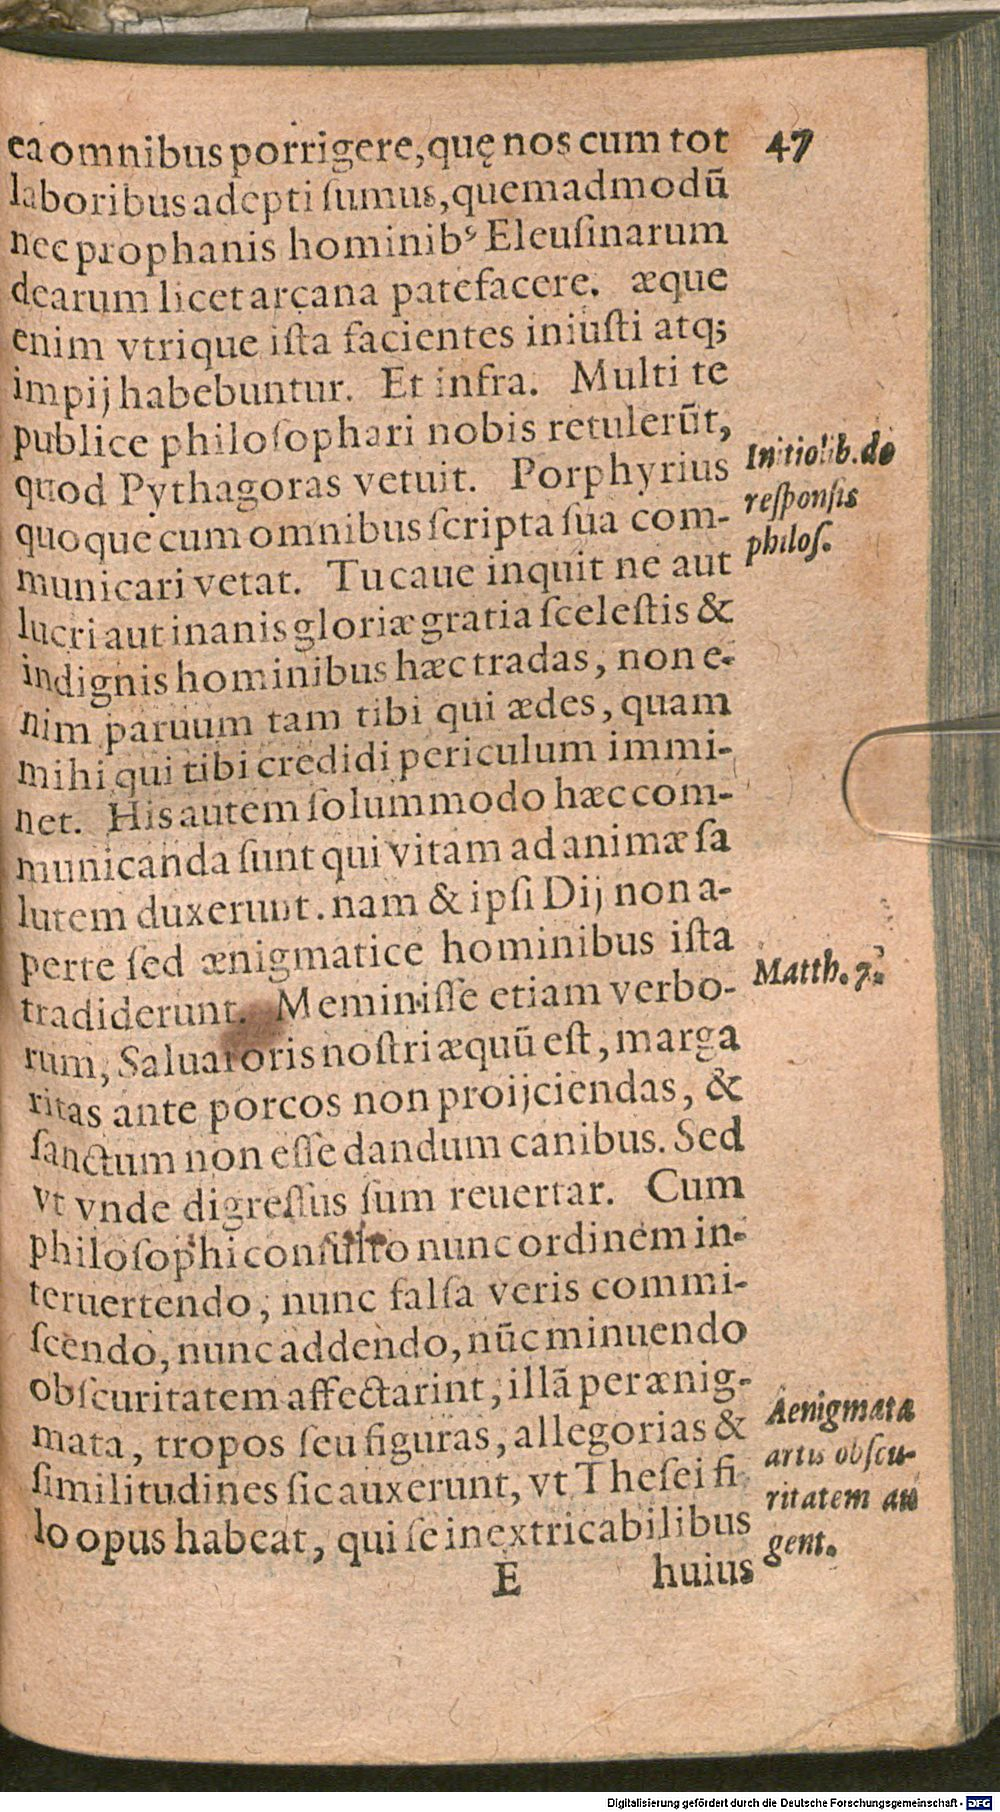 47
ea omnibus porrigere, quę nos cum tot
laboribus adepti ſumus, quemadmodū
nec prophanis hominibꝰ Eleuſinarum
dearum licet arcana patefacere. æque
enim vtrique iſta facientes iniuſti atq;
impij habebuntur. Et infra. Multi te
publice philoſophari nobis retulerūt,
quod Pythagoras vetuit. Porphyrius
quoque cum omnibus ſcripta ſua com-
municari vetat. Tu caue inquit ne aut
lucri aut inanis gloriæ gratia ſceleſtis &
indignis hominibus hæc tradas, non e-
nim paruum tam tibi qui ædes, quam
mihi qui tibi credidi periculum immi-
net. His autem ſolummodo hæc com-
municanda ſunt qui vitam ad animæ ſa
lutem duxerunt. nam & ipſi Dij non a-
perte ſed ænigmatice hominibus iſta
tradiderunt. Meminiſſe etiam verbo-
rum, Saluatoris noſtri æquū eſt, marga
ritas ante porcos non proijciendas, &
ſanctum non eſſe dandum canibus. Sed
vt vnde digreſſus ſum reuertar. Cum
philoſophi conſulto nunc ordinem in-
teruertendo, nunc falſa veris commi-
ſcendo, nunc addendo, nūc minuendo
obſcuritatem affectarint, illā per ænig-
mata, tropos ſeu figuras, allegorias &
ſimilitudines ſic auxerunt, vt Theſei fi
lo opus habeat, qui ſe inextricabilibus
E huius
Initio lib. de
reſponſis
philoſ.
Matth. 7.
Aenigmata
artis obſcu-
ritatem au
gent.
Digitalisierung gefördert durch die Deutsche Forschungsgemeinschaft - DFG